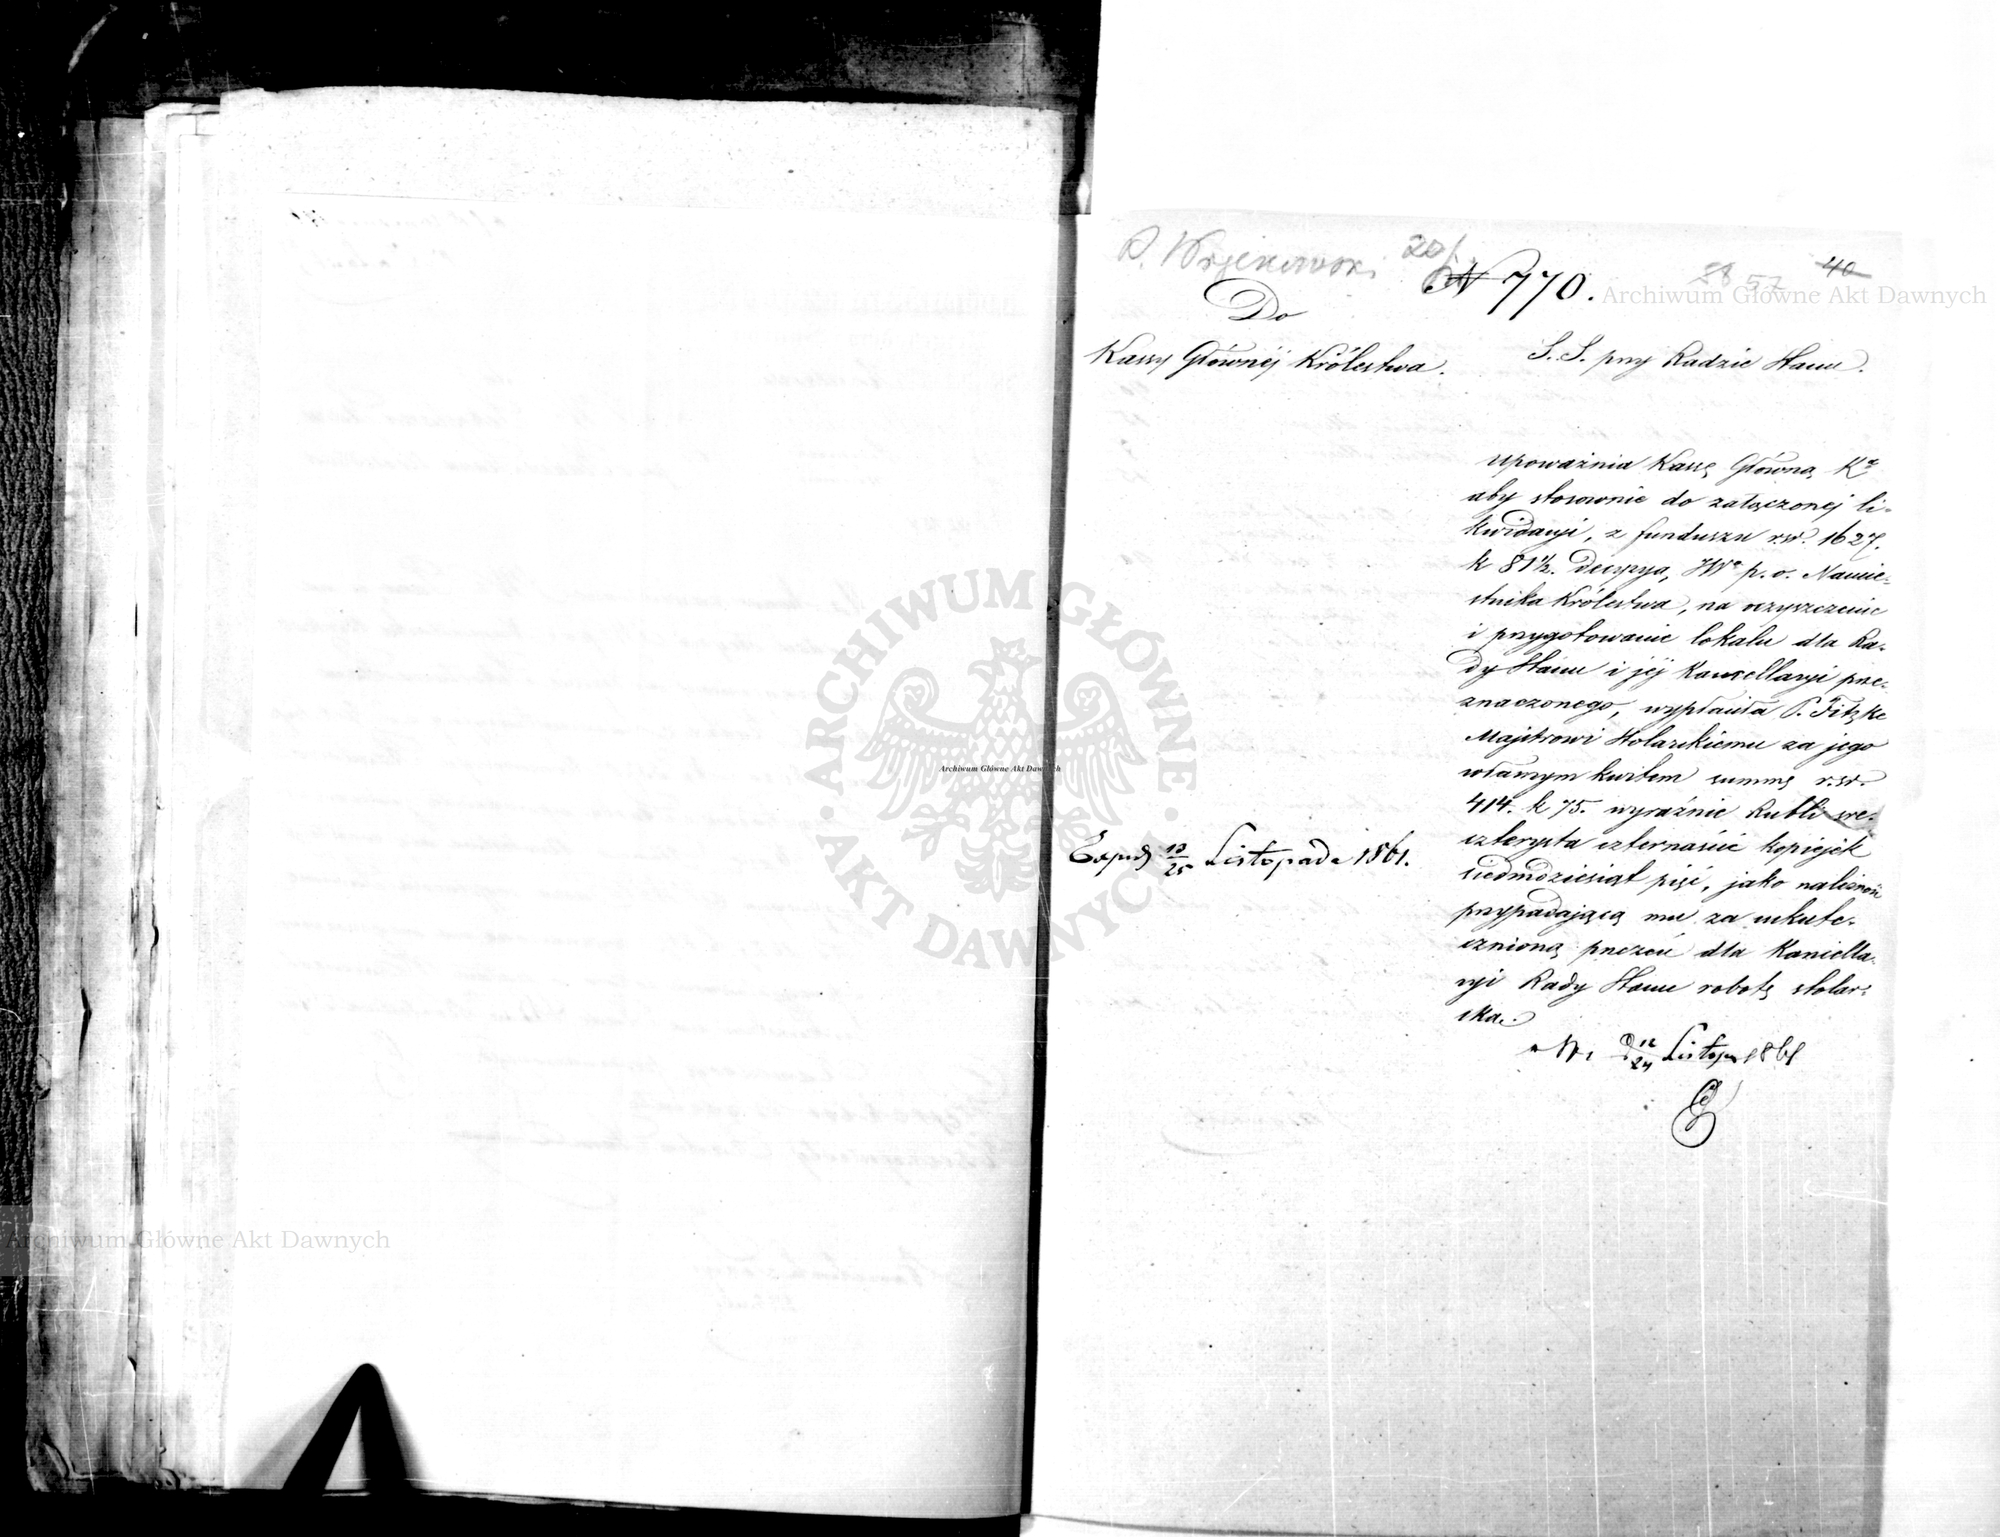 P. Wojciechowski
N 770.
57
40
Do
Kassy Głównéj Królestwa.
S. S. przy Radzie Stanu.
upoważnia Kassę Główną Kr
aby stosownie do załączonej li-
kwidacyi, z funduszu rsr. 1627.
k 81½. decyzyą JW p. o. Namie-
stnika Królestwa, na oczyszczenie
i przygotowanie lokalu dla Ra-
dy Stanu i jéj Kancellaryi prze-
znaczonego, wypłaciła P. Fitzke
Majstrowi Stolarskiemu za jego
własnym kwitem summę rsr.
414. k 75. wyraźnie Rubli sre.
czterysta czternaście kopiejek
siedmdziesiąt pięć, jako należność
przypadającą mu za uskute-
cznioną przezeń dla Kancella-
ryi Rady Stanu robotę stolar-
ską.
W. d 12/24 Listop 1861
Exped 13/25 Listopada 1861.
Archiwum Główne Akt Dawnych
ARCHIWUM GŁÓWNE AKT DAWNYCH
Archiwum Główne Akt Dawnych
Archiwum Główne Akt Dawnych